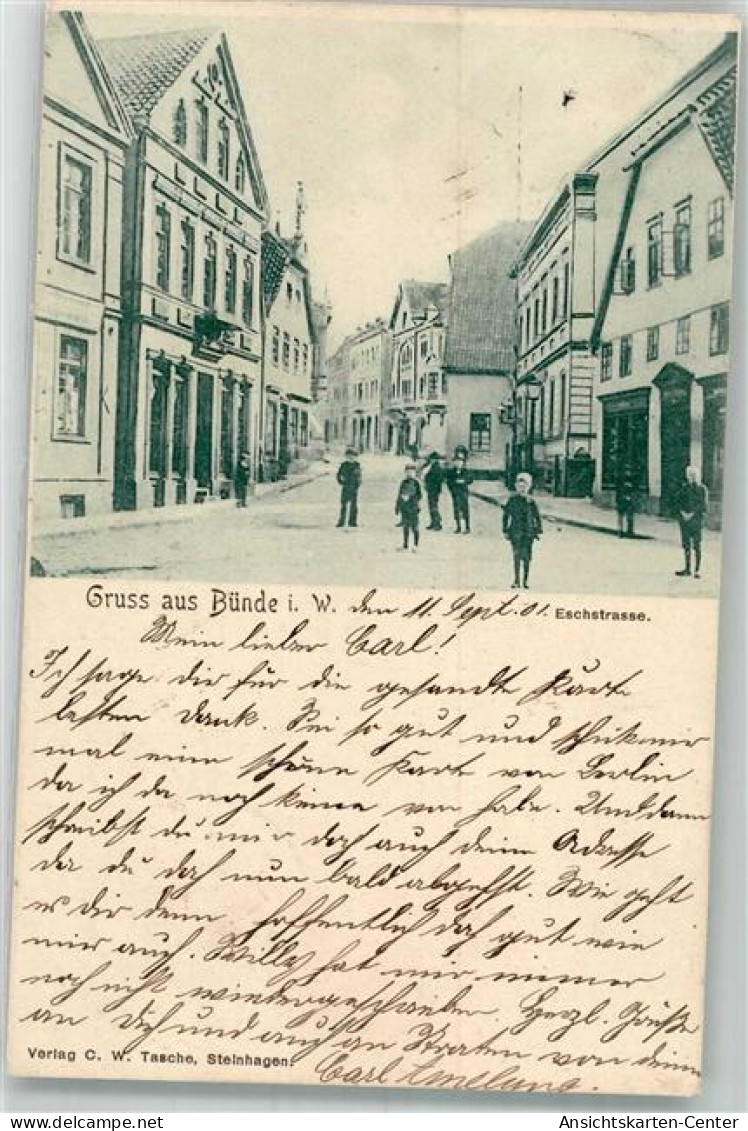 Gruss aus Bünde i. W. den 11. Sept. 01. Eschstrasse.
Mein lieber Carl!
Ich sage dir für die gesandte Karte
besten Dank. Sei so gut und schick mir
mal eine schöne Karte von Berlin
da ich da noch keine von habe. Und dann
schreibst du mir doch auch deine Adresse
da du doch nun bald abgehst. Wie geht
es dir denn hoffentlich doch gut wie
mir auch. Willy hat mir immer
noch nicht wiedergeschrieben. Herzl. Grüße
an Dich und auch an Straten von deinem
Verlag C. W. Tasche, Steinhagen.
Carl Amelung.
Ansichtskarten-Center